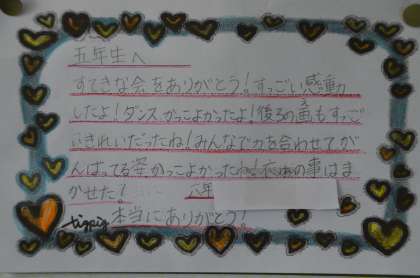 五年生へ
すてきな会をありがとう!すっごい感動
したよ!ダンスかっこよかったよ!後ろの画もすっご
いきれいだったね!みんなで力を合わせてが
んばってる姿かっこよかったね!次の事はま
かせた!
六年
本当にありがとう!